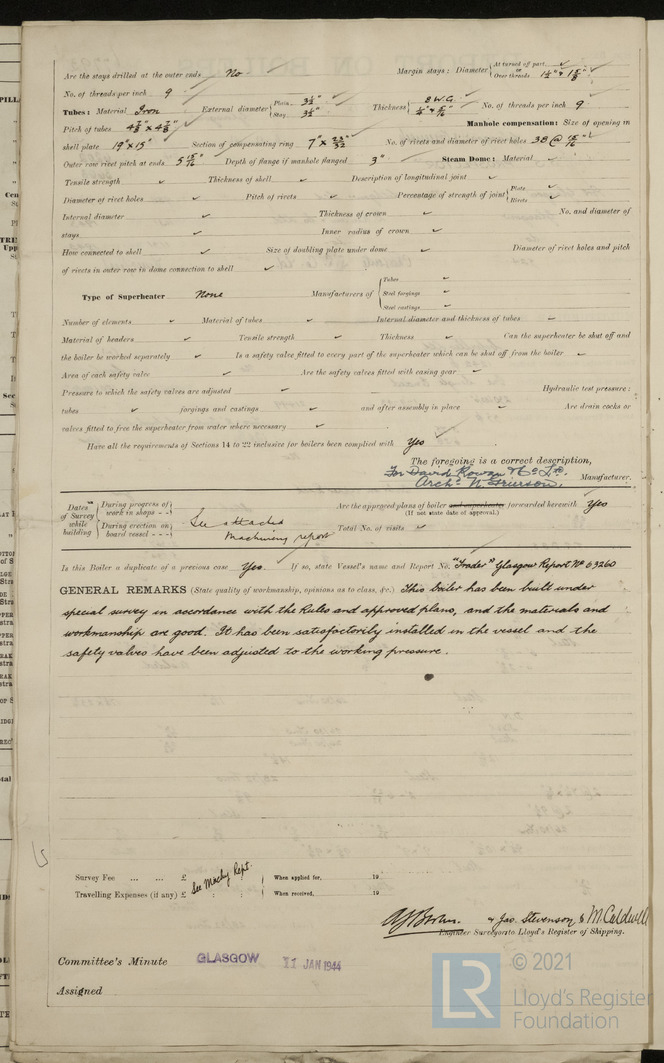 Are the stays drilled at the outer ends No. Margin stays: Diameter { At turned off part, ✓ or Over threads 1½" & 1⅝"
No. of threads per inch 9
Tubes: Material Iron External diameter { Plain 3½" Stay 3½" Thickness { 8 W.G. No. of threads per inch 9
Pitch of tubes Manhole compensation: Size of opening in
shell plate 19" x 15" Section of compensating ring 7" x No. of rivets and diameter of rivet holes 38 @
Outer row rivet pitch at ends Depth of flange if manhole flanged 3" Steam Dome: Material ✓
Tensile strength ✓ Thickness of shell ✓ Description of longitudinal joint ✓
Diameter of rivet holes ✓ Pitch of rivets ✓ Percentage of strength of joint { Plate ✓ Rivets ✓
Internal diameter ✓ Thickness of crown ✓ No. and diameter of
stays ✓ Inner radius of crown ✓
How connected to shell ✓ Size of doubling plate under dome ✓ Diameter of rivet holes and pitch
of rivets in outer row in dome connection to shell ✓
Type of Superheater None Manufacturers of { Tubes ✓ Steel forgings ✓ Steel castings ✓
Number of elements ✓ Material of tubes ✓ Internal diameter and thickness of tubes ✓
Material of headers ✓ Tensile strength ✓ Thickness ✓ Can the superheater be shut off and
the boiler be worked separately ✓ Is a safety valve fitted to every part of the superheater which can be shut off from the boiler ✓
Area of each safety valve ✓ Are the safety valves fitted with easing gear ✓
Pressure to which the safety valves are adjusted ✓ Hydraulic test pressure:
tubes ✓ forgings and castings ✓ and after assembly in place ✓ Are drain cocks or
valves fitted to free the superheater from water where necessary ✓
Have all the requirements of Sections 14 to 22 inclusive for boilers been complied with Yes
The foregoing is a correct description,
For David Rowan & Co. Ltd.
Archd. W. Grierson. Manufacturer.
Dates of Survey while building { During progress of work in shops - - } { During erection on board vessel - - - }
See attached
Machinery report
Are the approved plans of boiler and superheater forwarded herewith Yes
(If not state date of approval.)
Total No. of visits ✓
Is this Boiler a duplicate of a previous case Yes. If so, state Vessel's name and Report No. "Trader" Glasgow Report No 63260
GENERAL REMARKS (State quality of workmanship, opinions as to class, &c.) This boiler has been built under
special survey in accordance with the Rules and approved plans, and the materials and
workmanship are good. It has been satisfactorily installed in the vessel and the
safety valves have been adjusted to the working pressure.
Survey Fee ... ... £ See Machy Rept. When applied for, 19
Travelling Expenses (if any) £ : : When received, 19
& Jas. Stevenson & M. Caldwell
Engineer Surveyor to Lloyd's Register of Shipping.
Committee's Minute GLASGOW 11 JAN 1944
Assigned
© 2021
LR Lloyd's Register
Foundation